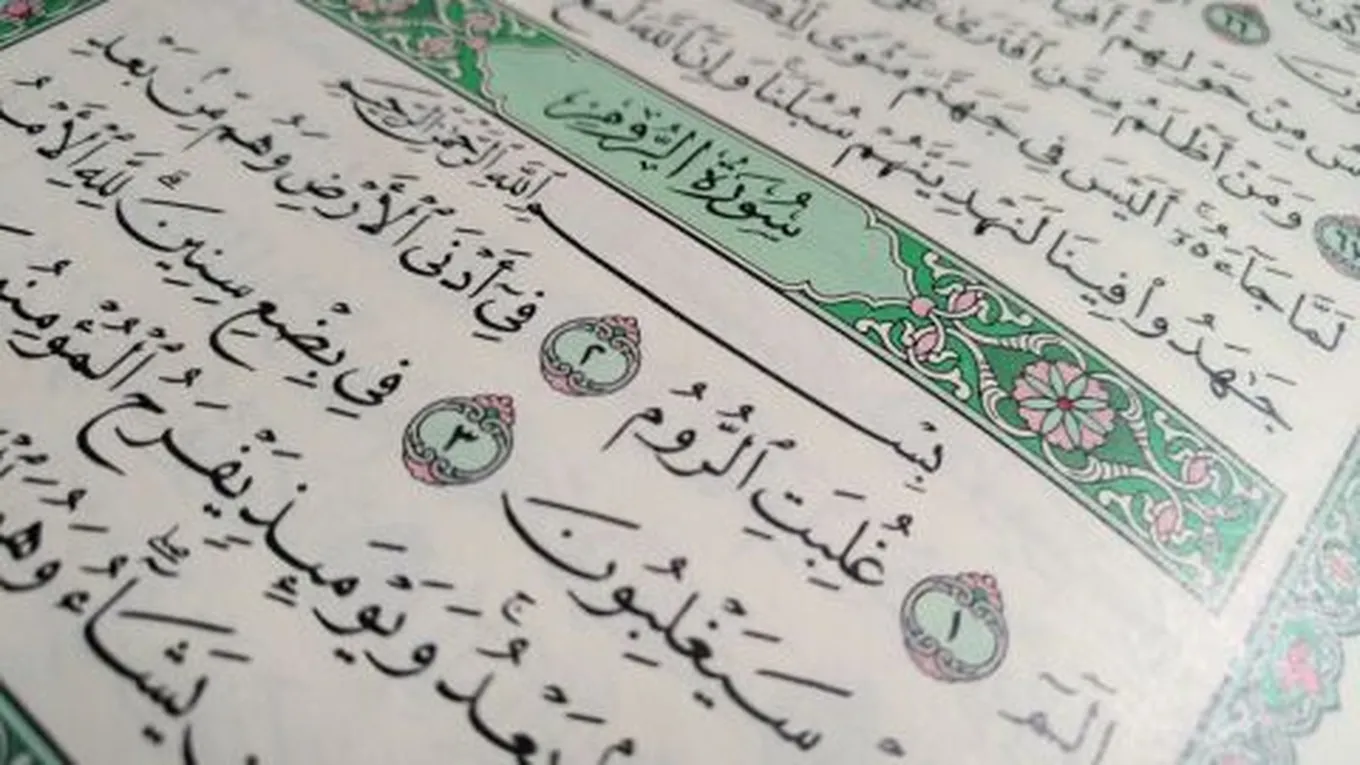 مِنْ حَوْلِهِمْ ۚ أَفَبِا
٦٦
وَمَنْ أَظْلَمُ مِمَّنِ ٱفْتَرَىٰ عَلَى
لَمَّا جَآءَهُۥٓ ۚ أَلَيْسَ فِى جَهَنَّمَ مَثْوًى لِّلْكَ
٦٨
جَٰهَدُوا۟ فِينَا لَنَهْدِيَنَّهُمْ سُبُلَنَا ۚ وَإِنَّ ٱللَّهَ لَمَعَ
سُورَةُ الرُّومِ
بِسْمِ ٱللَّهِ ٱلرَّحْمَٰنِ ٱلرَّحِيمِ
الٓمٓ ١ غُلِبَتِ ٱلرُّومُ ٢ فِىٓ أَدْنَى ٱلْأَرْضِ وَهُم مِّنۢ بَعْدِ
سَيَغْلِبُونَ ٣ فِى بِضْعِ سِنِينَ ۗ لِلَّهِ ٱلْأَمْرُ
بَعْدُ ۚ وَيَوْمَئِذٍ يَفْرَحُ ٱلْمُؤْمِنُو
يَشَآءُ ۖ وَهُوَ